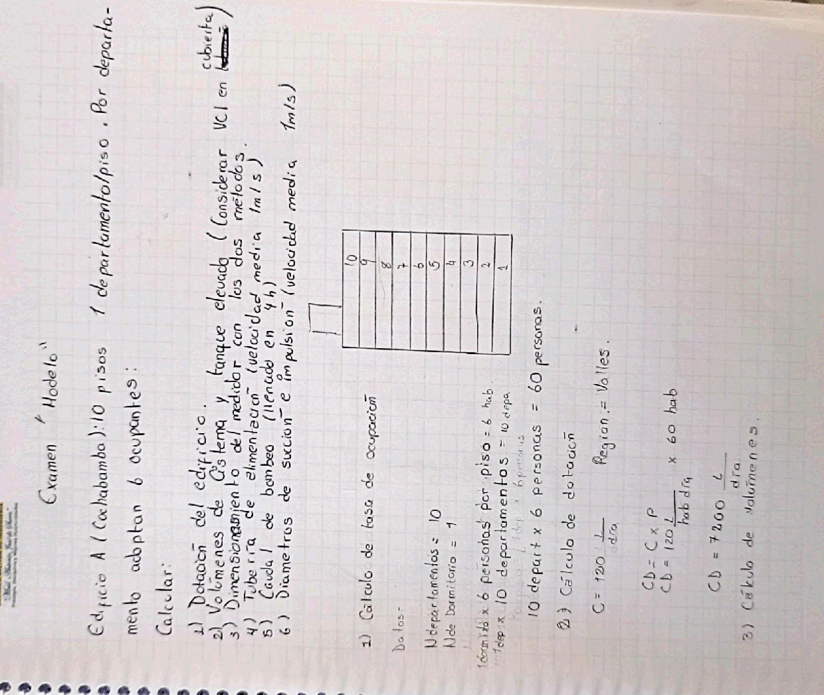 Examen "Modelo"
Edificio A (Cochabamba): 10 pisos 1 departamento/piso. Por departa-
mento adoptan 6 ocupantes:
Calcular:
1) Dotación del edificio.
2) Volúmenes de Cisterna y tanque elevado (Considerar VCI en cubierta)
3) Dimensionamiento del medidor con los dos métodos.
4) Tubería de alimentación (velocidad media 1m/s)
5) Caudal de bombeo (llenado en 4h)
6) Diametros de succion e impulsion (velocidad media 1m/s)
10
9
8
7
6
5
4
3
2
1
1) Calculo de tasa de ocupación
Datos-
N departamentos = 10
N de Dormitorio = 1
x 6 personas por piso = 6 hab
x 10 departamentos = 10 depa
10 depart x 6 personas = 60 personas.
2) Cálculo de dotación
C = 120 L/dia Region = Valles.
CD = C x P
CD = 120 L/hab dia x 60 hab
CD = 7200 L/dia
3) Cálculo de volúmenes.